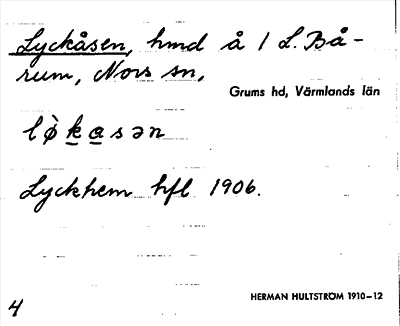 Lyckåsen, hmd å 1 L. Bå-
rum, Nors sn,
Grums hd, Värmlands län
lø̀kasən
Lyckhem hfl 1906.
HERMAN HULTSTRÖM 1910–12
4